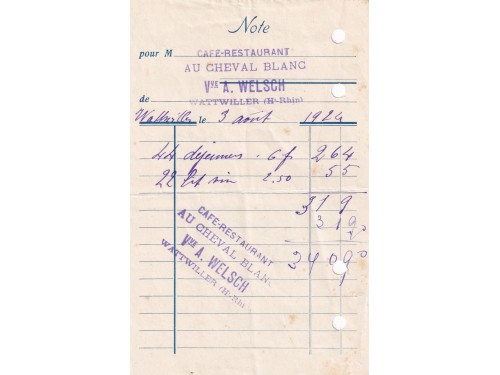 Note
pour M
CAFÉ-RESTAURANT
AU CHEVAL BLANC
Vve A. WELSCH
de
WATTWILLER (Ht-Rhin)
Wattwiller le 3 août 1924
44 déjeuners . 6 f 264
22 lit vin 2.50 55
319
319
34090
CAFÉ-RESTAURANT
AU CHEVAL BLANC
Vve A. WELSCH
WATTWILLER (Ht-Rhin)